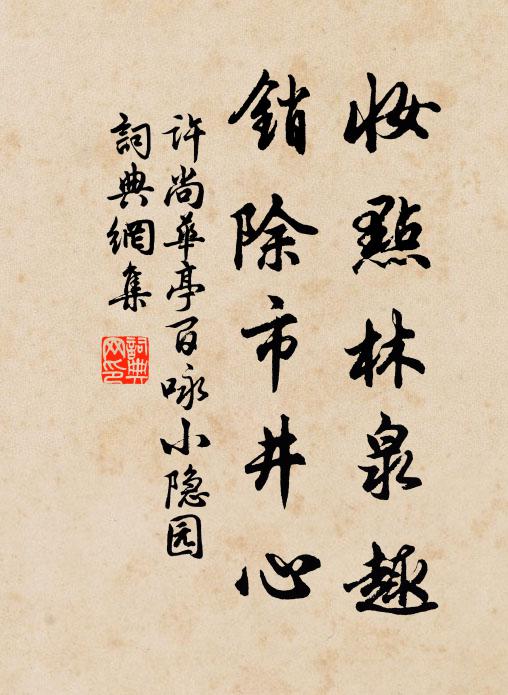 妆點林泉趣
銷除市井心
许尚華亭百咏小隐园
詞典網集
詞典網印